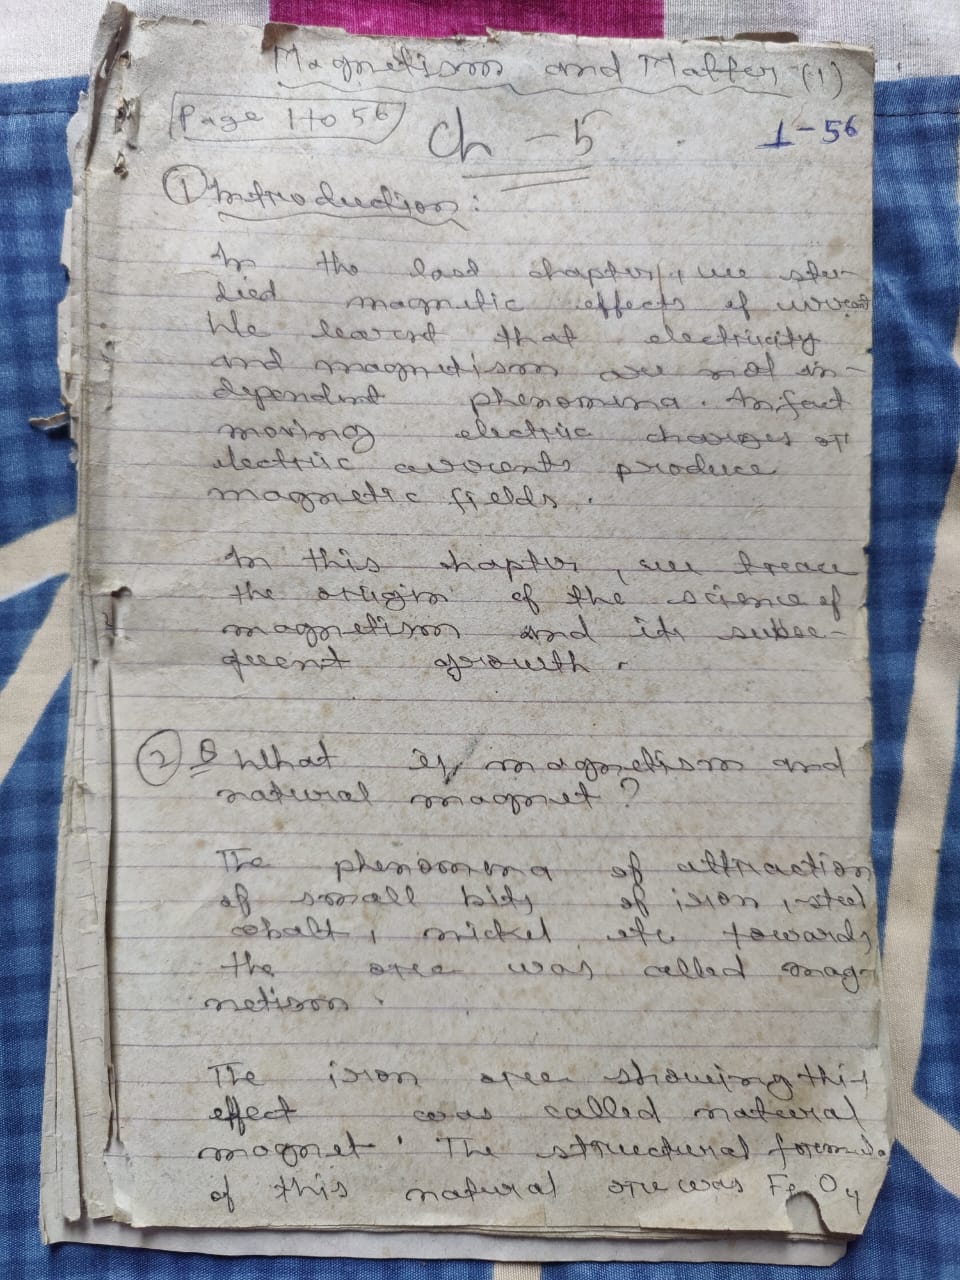 Magnetism and Matter (1)
Page 1 to 56
Ch - 5
1-56
① Introduction :
In the last chapter, we stu-
died magnetic effects of current
We learnt that electricity
and magnetism are not in-
dependent phenomena. Infact
moving electric charges or
electric currents produce
magnetic fields.
In this chapter, we treace
the origin of the science of
magnetism and its subse-
quent growth.
② Q What is magnetism and
natural magnet?
The phenomena of attraction
of small bits of iron, steel
cobalt, nickel etc towards
the oree was called mag-
netism.
The iron oree showing this
effect was called natural
magnet. The structural formula
of this natural ore was Fe O4